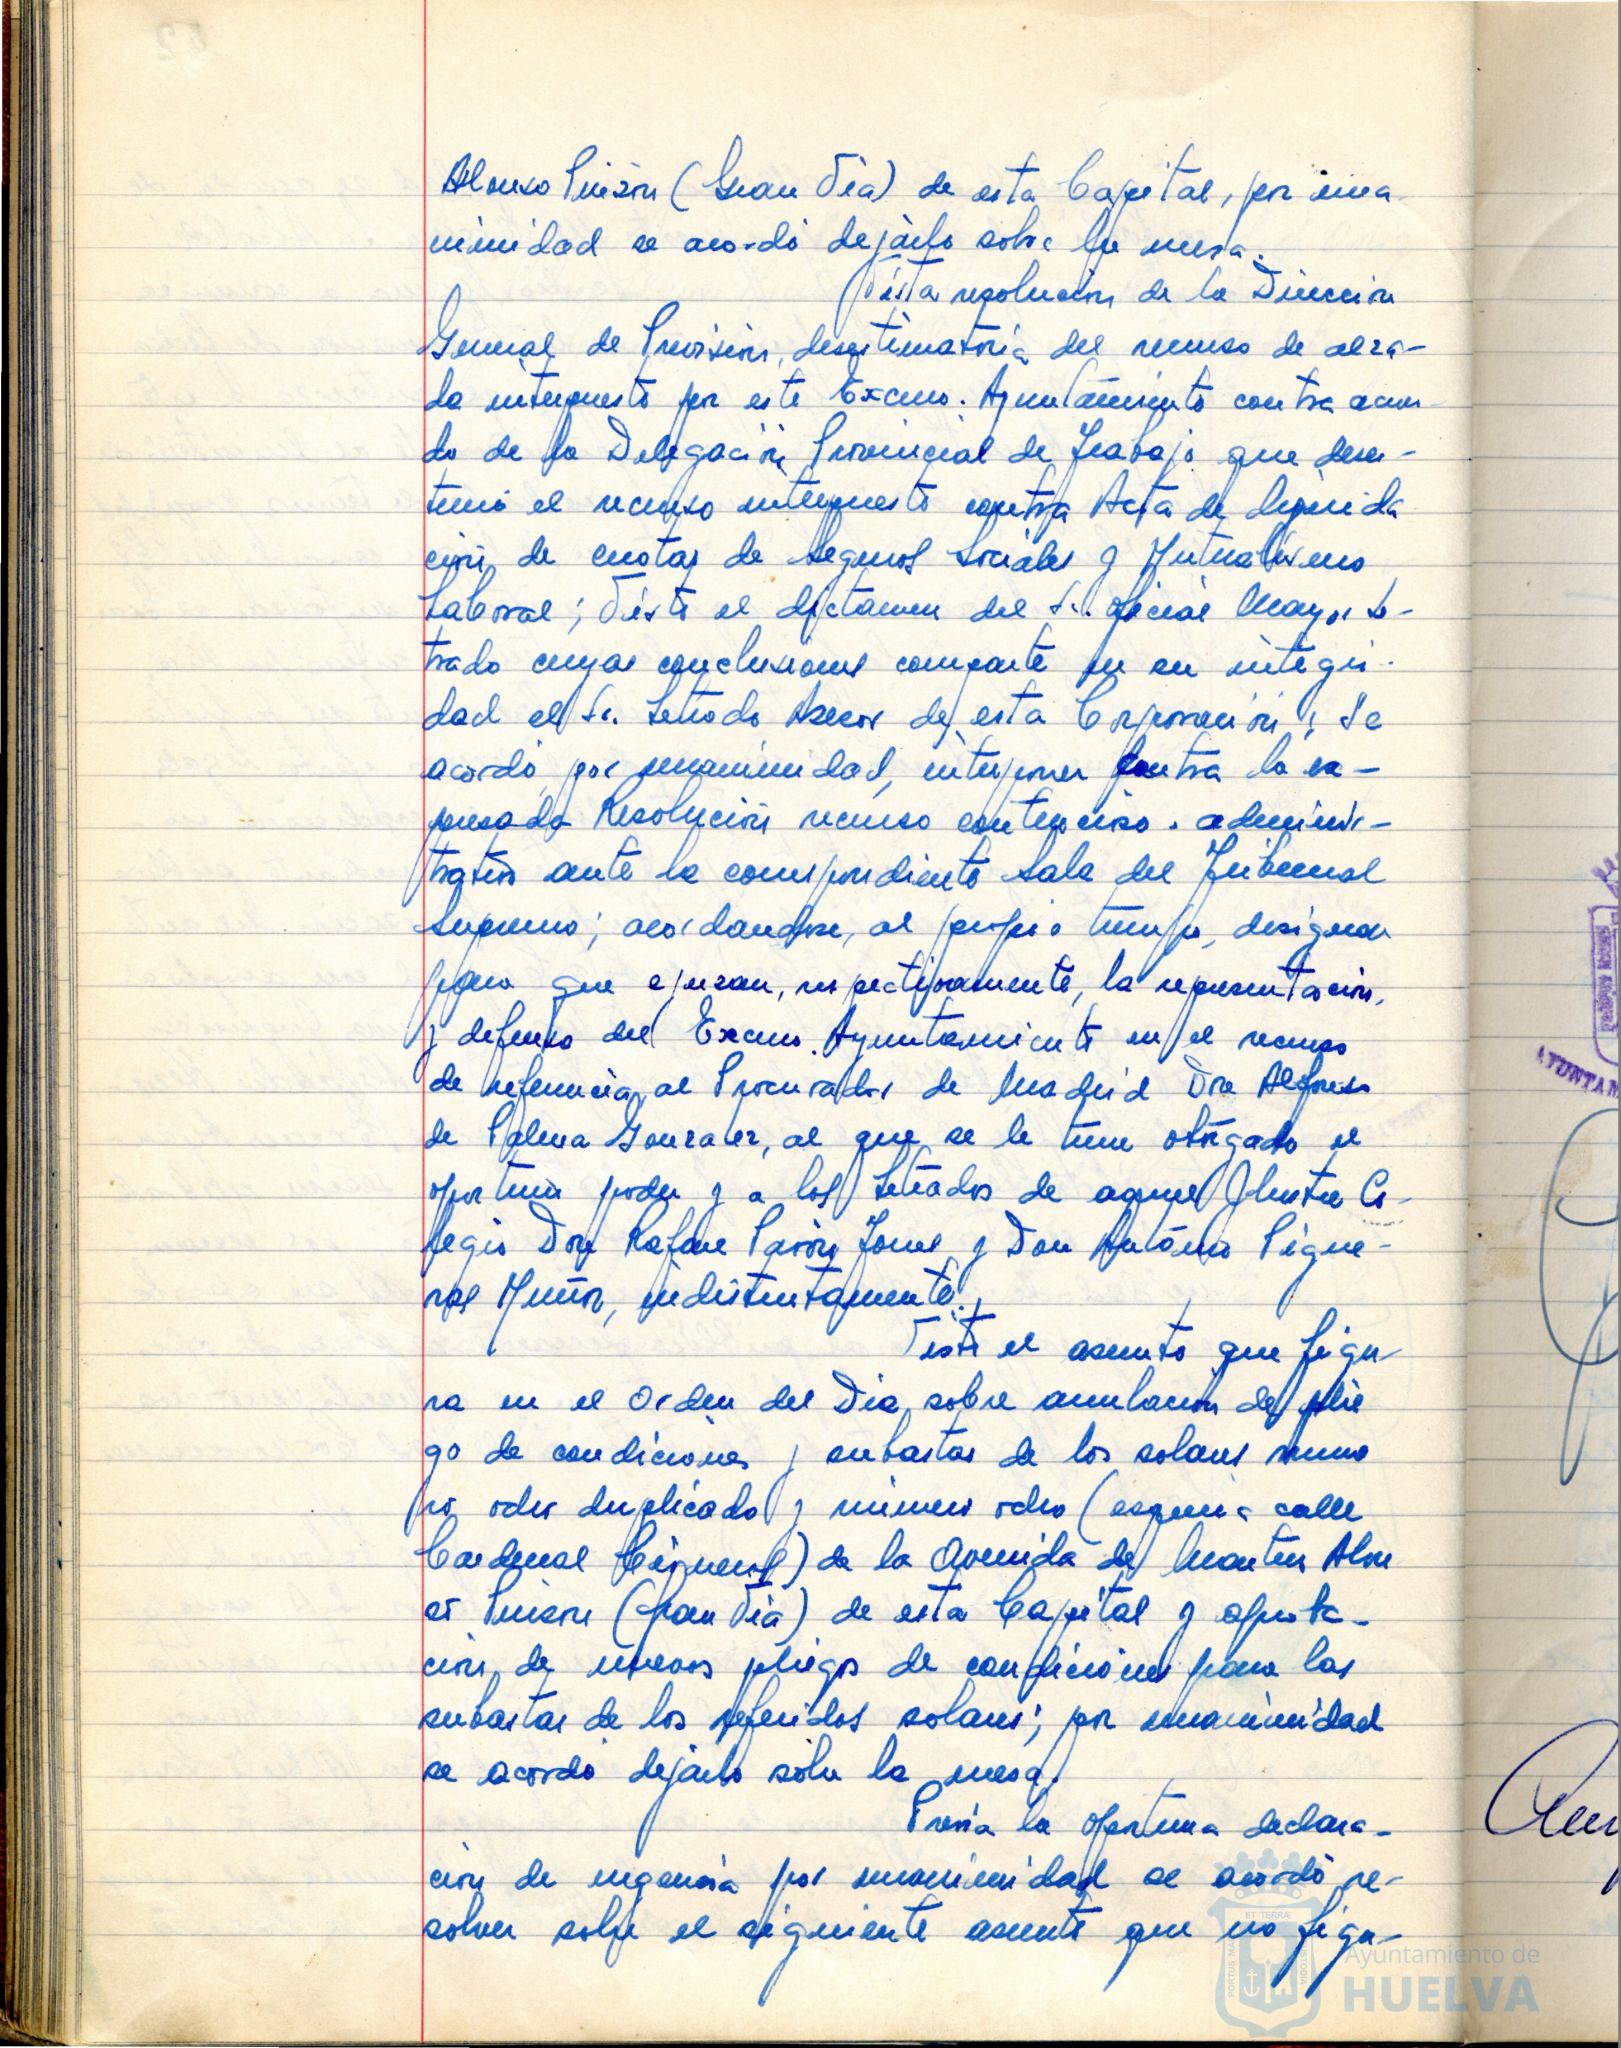 Alonso Pinzón (Gran Vía) de esta Capital, por una
nimidad se acordó dejarlo sobre la mesa.
Vista resolución de la Dirección
General de Previsión, desestimatoria del recurso de alza-
da interpuesto por este Excmo. Ayuntamiento contra acuer-
do de la Delegación Provincial de Trabajo que deses-
timó el recurso interpuesto contra Acta de liquida
ción de cuotas de Seguros Sociales y Mutualismo
Laboral; Visto el dictamen del Sr. Oficial Mayor Le-
trado cuyas conclusiones comparte en su integri-
dad el Sr. Letrado Asesor de esta Corporación; Se
acordó, por unanimidad, interponer contra la ex-
presada Resolución recurso contencioso-adminis-
trativo ante la correspondiente Sala del Tribunal
Supremo; acordandose, al propio tiempo, designar
para que ejerzan, respectivamente, la representación
y defensa del Excmo. Ayuntamiento en el recurso
de referencia, al Procurador de Madrid Don Alfonso
de Palma Gonzalez, al que se le tiene otorgado el
oportuno poder y a los Letrados de aquel Ilustre Co-
legio Don Rafael y Don Antonio
Muñoz, indistintamente.
Visto el asunto que figu-
ra en el Orden del Dia, sobre anulación de plie
go de condiciones y subastas de los solares núme
ro ocho duplicado y número ocho (esquina calle
Cardenal Cisneros) de la Avenida de Martin Alon
so Pinzón (Gran Vía) de esta Capital y aproba-
ción de nuevos pliegos de condiciones para las
subastas de los referidos solares; por unanimidad
se acordó dejarlo sobre la mesa.
Previa la oportuna declara-
ción de urgencia por unanimidad se acordó re-
solver sobre el siguiente asunto que no figu-
Ayuntamiento de
HUELVA